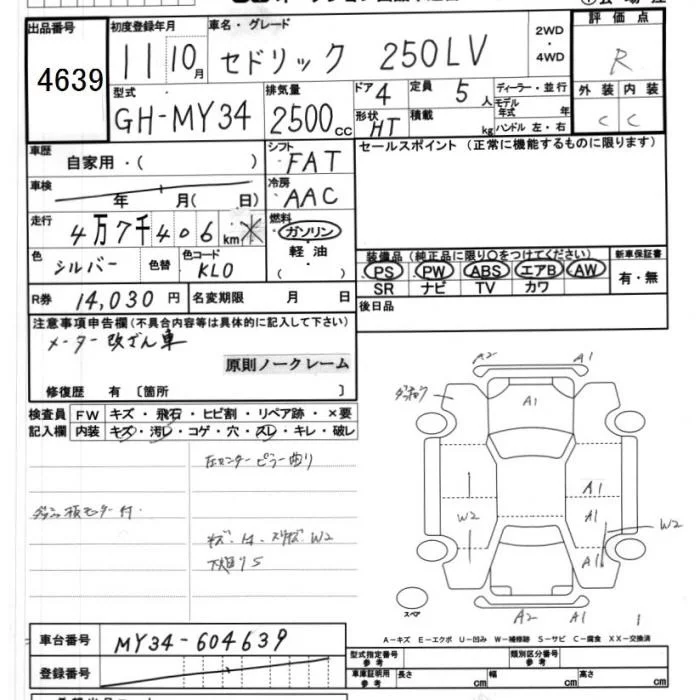 出品番号
4639
初度登録年月
11 10月
車名・グレード
セドリック 250LV
2WD
・
4WD
評価点
R
型式
GH-MY34
排気量
2500cc
ドア 4
定員 5人
形状 HT
積載 kg
ディーラー・並行
モデル年式 年
ハンドル 左・右
外装 内装
C C
車歴
自家用・( )
シフト
FAT
セールスポイント (正常に機能するものに限ります)
車検
年 月( 日)
冷房
AAC
走行
4万7千406km
燃料
ガソリン
軽油
・
( )
色
シルバー
色替
色コード
KL0
装備品 (純正品に限り○をつけてください)
PS PW ABS エアB AW
SR ナビ TV カワ
新車保証書
有・無
R券 14,030円
名変期限 月 日
後日品
注意事項申告欄(不具合内容等は具体的に記入して下さい)
メーター改ざん車
原則ノークレーム
修復歴 有 〔箇所 〕
検査員
記入欄
FW キズ・飛石・ヒビ割・リペア跡・×要
内装 キズ・汚レ・コゲ・穴・スレ・キレ・破レ
左センターピラー曲り
W2
A2 A1
A1
W2
A1
A1
A1
W2
スペア
A2 A1
1
A-キズ E-エクボ U-凹み W-補修跡 S-サビ C-腐食 XX-交換済
車台番号
MY34-604639
登録番号
型式指定番号
参考
類別区分番号
参考
車庫証明用
参考
長さ cm 幅 cm 高さ cm